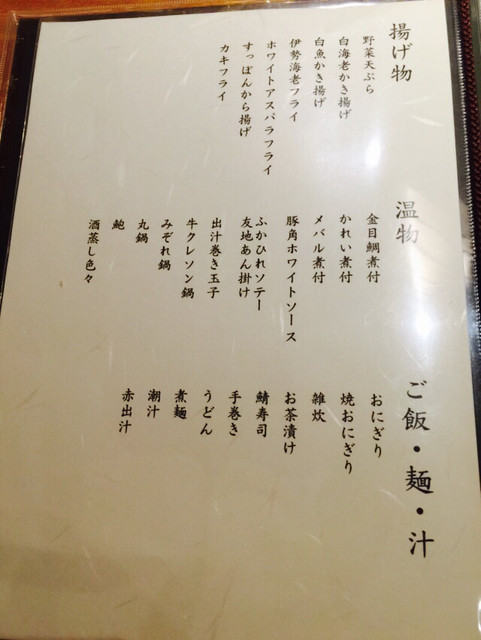 揚げ物
野菜天ぷら
白海老かき揚げ
白魚かき揚げ
伊勢海老フライ
ホワイトアスパラフライ
すっぽんから揚げ
カキフライ
温物
金目鯛煮付
かれい煮付
メバル煮付
豚角ホワイトソース
ふかひれソテー
友地あん掛け
出汁巻き玉子
牛クレソン鍋
みぞれ鍋
丸鍋
鮑
酒蒸し色々
ご飯・麺・汁
おにぎり
焼おにぎり
雑炊
お茶漬け
鯖寿司
手巻き
うどん
煮麺
潮汁
赤出汁